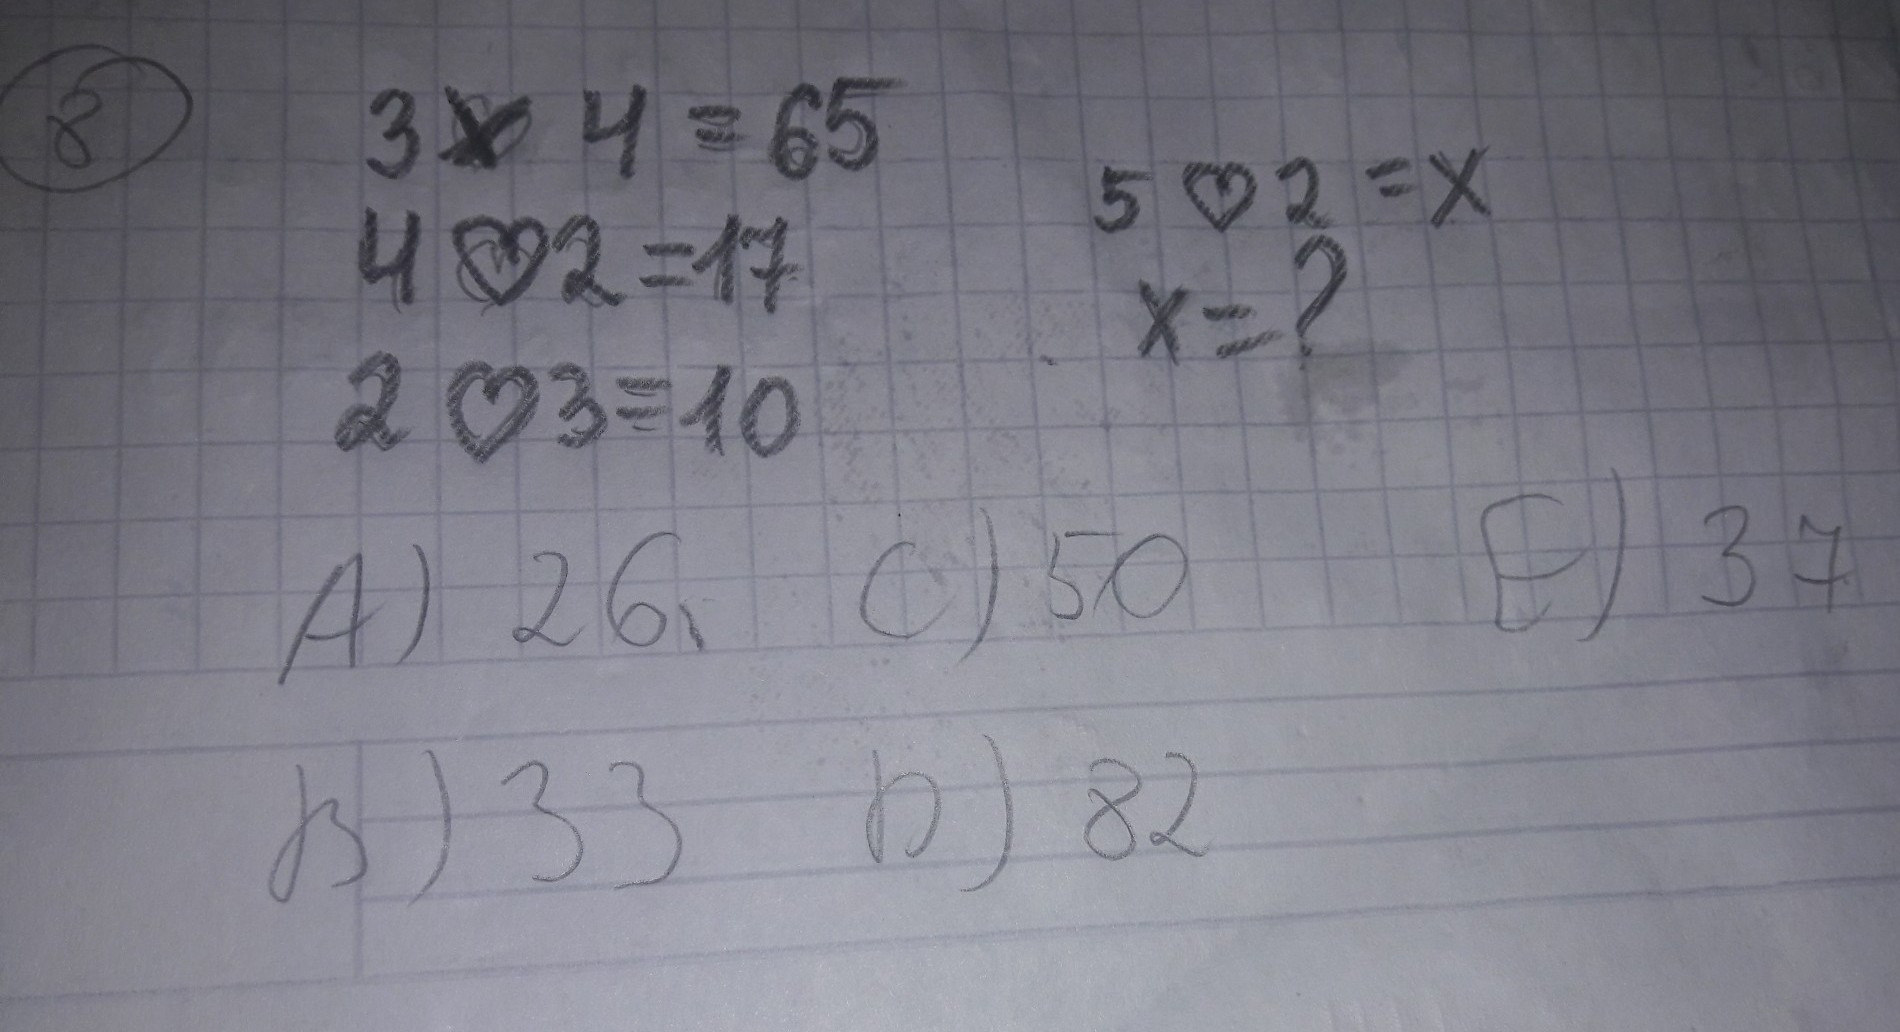 8
3 ♥ 4 = 65
4 ♡ 2 = 17
2 ♡ 3 = 10
5 ♡ 2 = x
x = ?
A) 26 C) 50 E) 37
B) 33 D) 82